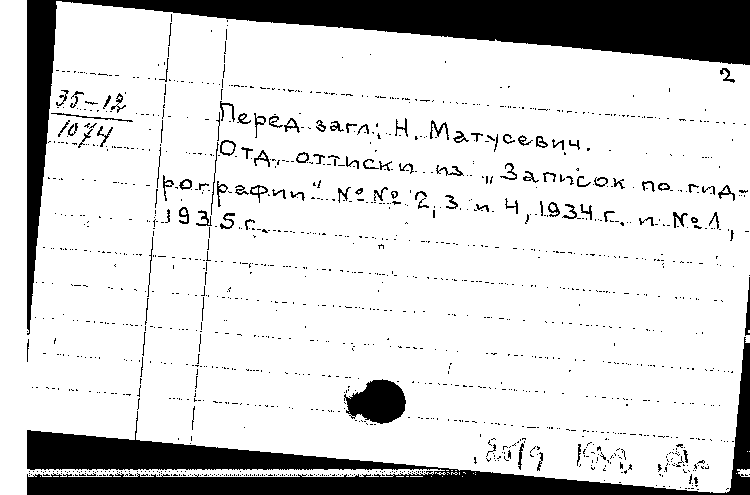 2
35-12
1074
Перед загл.: Н. Матусевич.
Отд. оттиски из „Записок по гид-
рографии" №№ 2, 3 и 4, 1934 г. и № 1,
1935 г.